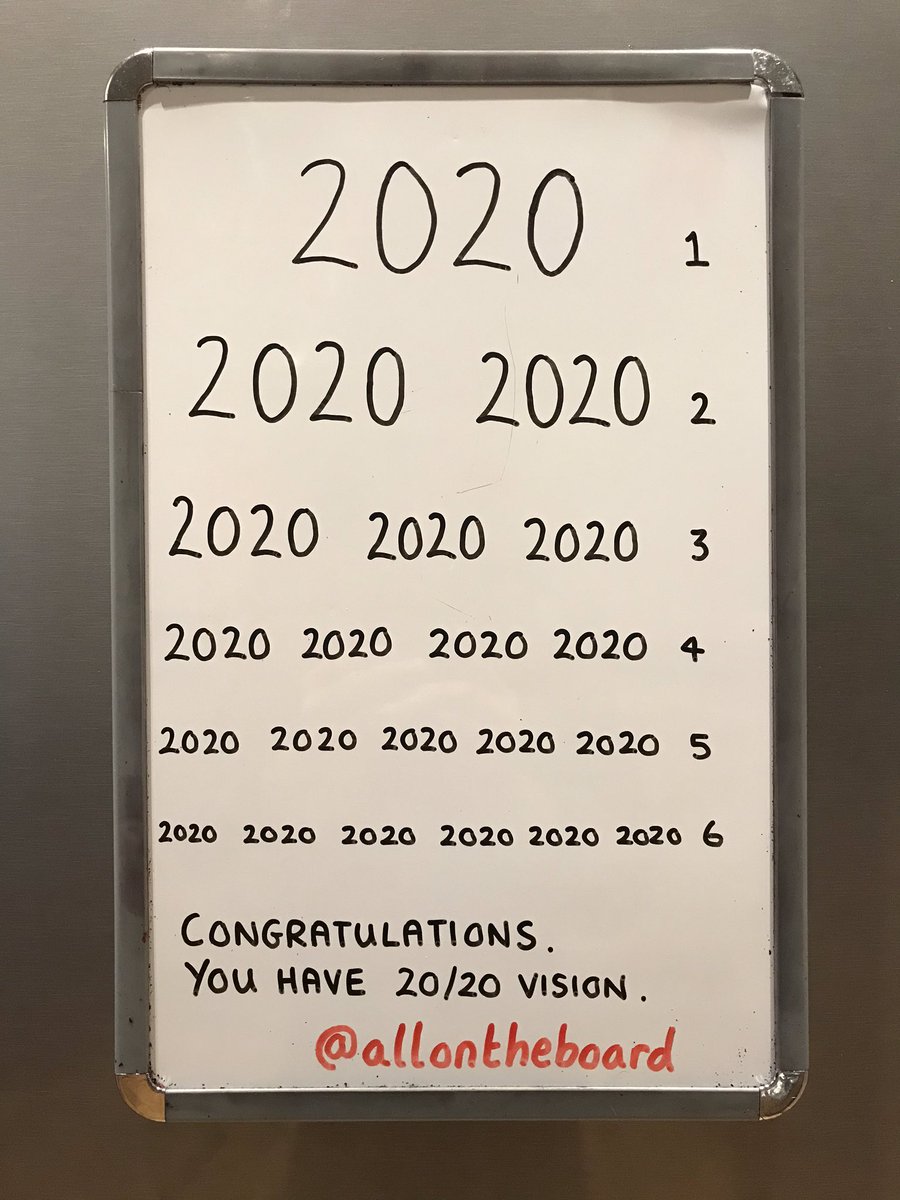 2020 1
2020 2020 2
2020 2020 2020 3
2020 2020 2020 2020 4
2020 2020 2020 2020 2020 5
2020 2020 2020 2020 2020 2020 6
CONGRATULATIONS.
YOU HAVE 20/20 VISION.
@allontheboard